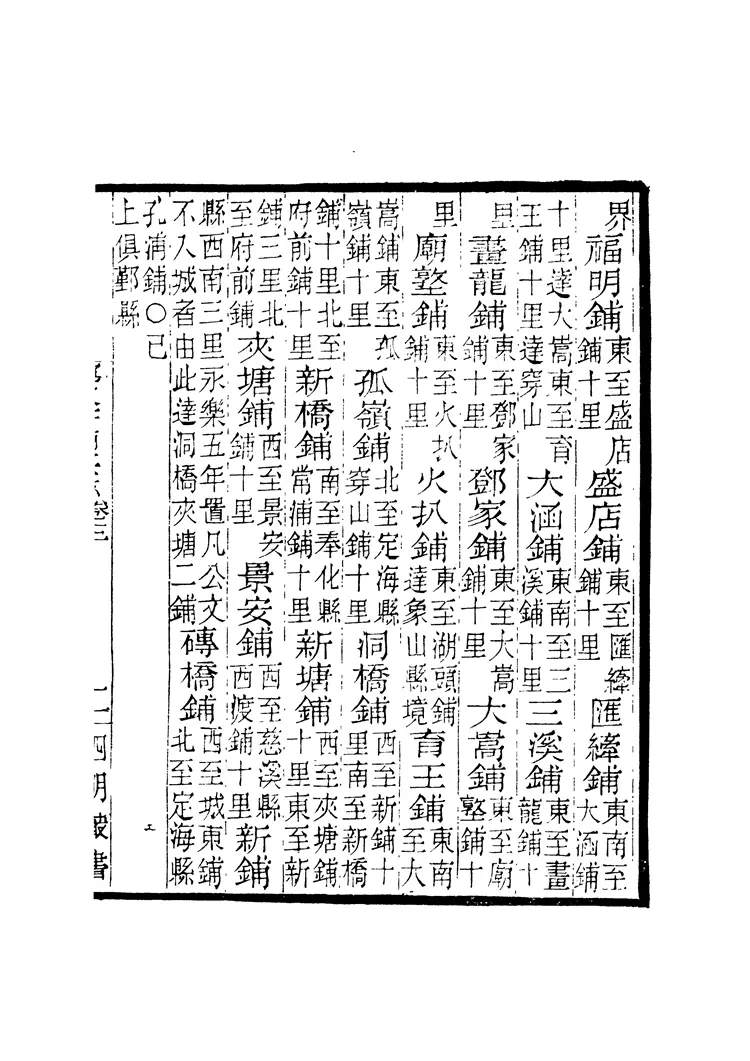 界福明鋪東至盛店鋪十里盛店鋪東至匯縴鋪十里匯縴鋪東南至大涵鋪
十里達大嵩東至育王鋪十里達穿山大涵鋪東南至三溪鋪十里三溪鋪東至畫龍鋪十
里畫龍鋪東至鄧家鋪十里鄧家鋪東至大嵩鋪十里大嵩鋪東至廟墪鋪十
里廟墪鋪東至火扒鋪十里火扒鋪東至湖頭鋪達象山縣境育王鋪東南至大
嵩鋪東至孤嶺鋪十里孤嶺鋪北至定海縣穿山鋪十里洞橋鋪西至新鋪十里南至新橋
鋪十里北至府前鋪十里新橋鋪南至奉化縣常浦鋪十里新塘鋪西至夾塘鋪十里東至新
鋪三里北至府前鋪夾塘鋪西至景安鋪十里景安鋪西至慈溪縣西渡鋪十里新鋪
縣西南三里永樂五年置凡公文不入城者由此達洞橋夾塘二鋪磚橋鋪西至城東鋪北至定海縣
孔浦鋪〇已上俱鄞縣
卷三 四明叢書